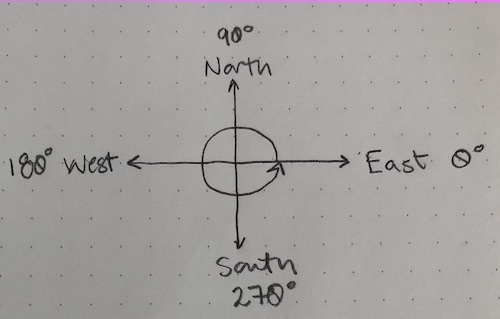 90°
North
180° West
East 0°
South
270°